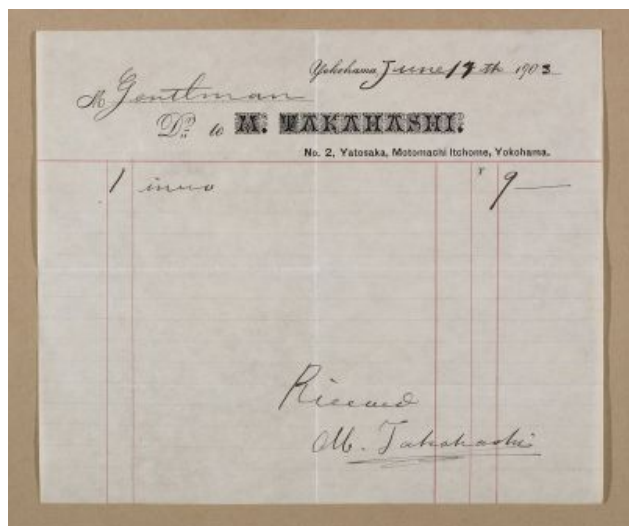 Yokohama, June 17th 1903
M Gentlman
Dr. to M. TAKAHASHI.
No. 2, Yatosaka, Motomachi Itchome, Yokohama.
1 inuro ¥ 9 —
Riceved
M. Takahashi